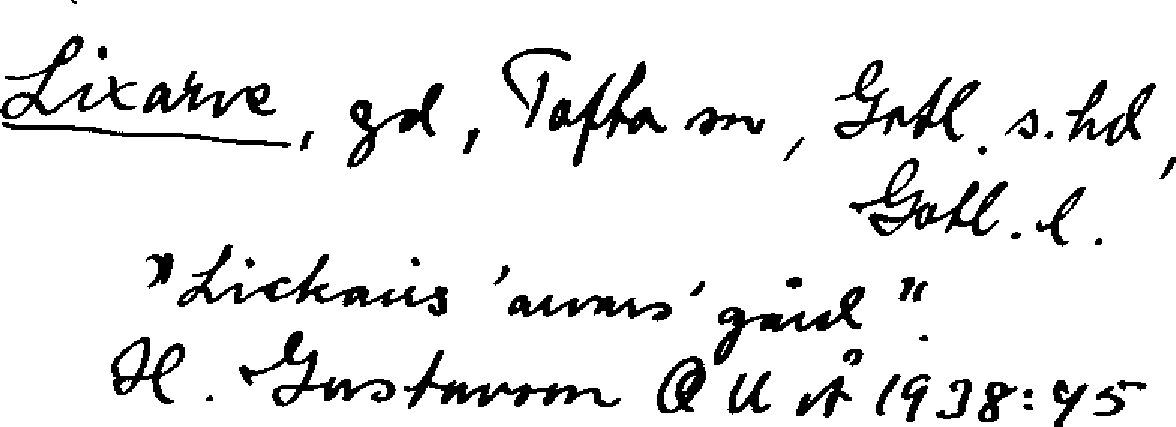 Lixarve, gd, Tofta sn, Gotl. s. hd,
Gotl. l.
"Lickairs 'arvars' gård".
H. Gustavson OUÅ 1938:45